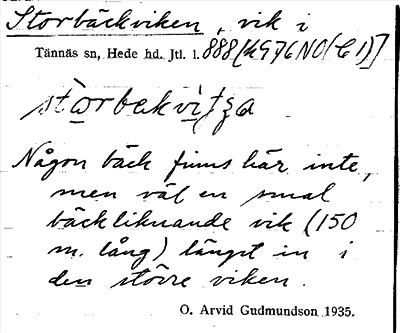 Storbäckviken, vik i
Tännäs sn, Hede hd. Jtl. l. 888 [k976NO(C1)]
Någon bäck finns här inte,
men väl en smal
bäckliknande vik (150
m. lång) längst in i
den större viken.
O. Arvid Gudmundson 1935.